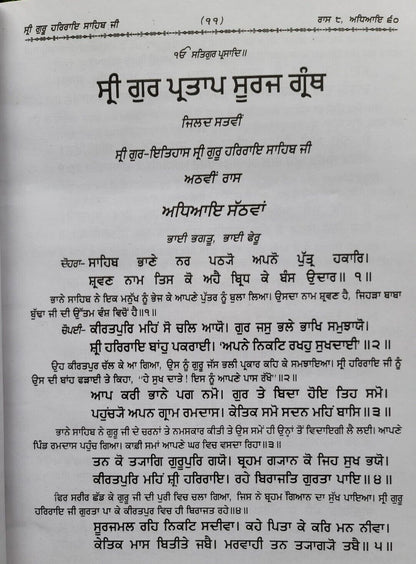 ਸ੍ਰੀ ਗੁਰੂ ਹਰਿਰਾਇ ਸਾਹਿਬ ਜੀ (੧੧) ਰਾਸ ੮, ਅਧਿਆਇ ੬੦
ੴ ਸਤਿਗੁਰ ਪ੍ਰਸਾਦਿ॥
ਸ੍ਰੀ ਗੁਰ ਪ੍ਰਤਾਪ ਸੂਰਜ ਗ੍ਰੰਥ
ਜਿਲਦ ਸਤਵੀਂ
ਸ੍ਰੀ ਗੁਰ-ਇਤਿਹਾਸ ਸ੍ਰੀ ਗੁਰੂ ਹਰਿਰਾਇ ਸਾਹਿਬ ਜੀ
ਅਠਵੀਂ ਰਾਸ
ਅਧਿਆਇ ਸੱਠਵਾਂ
ਭਾਈ ਭਗਤੂ, ਭਾਈ ਫੇਰੂ
ਦੋਹਰਾ- ਸਾਹਿਬ ਭਾਣੇ ਨਰ ਪਠ੍ਯੋ ਅਪਨੋ ਪੁੱਤ੍ਰ ਹਕਾਰਿ।
ਸ਼੍ਰਵਣ ਨਾਮ ਤਿਸ ਕੋ ਅਹੈ ਬ੍ਰਿਧ ਕੇ ਬੰਸ ਉਦਾਰ॥ ੧॥
ਭਾਨੇ ਸਾਹਿਬ ਨੇ ਇਕ ਮਨੁੱਖ ਨੂੰ ਭੇਜ ਕੇ ਆਪਣੇ ਪੁੱਤਰ ਨੂੰ ਬੁਲਾ ਲਿਆ। ਉਸਦਾ ਨਾਮ ਸ਼੍ਰਵਣ ਹੈ, ਜਿਹੜਾ ਬਾਬਾ
ਬੁੱਢਾ ਜੀ ਦੀ ਉੱਤਮ ਵੰਸ਼ ਵਿਚੋਂ ਹੈ॥੧॥
ਚੌਪਈ- ਕੀਰਤਪੁਰਿ ਮਹਿਂ ਸੋ ਚਲਿ ਆਯੋ। ਗੁਰ ਜਸੁ ਭਲੇ ਭਾਖਿ ਸਮੁਝਾਯੋ।
ਸ਼੍ਰੀ ਹਰਿਰਾਇ ਬਾਂਹੁ ਪਕਰਾਈ। 'ਅਪਨੇ ਨਿਕਟਿ ਰਖਹੁ ਸੁਖਦਾਈ' ॥ ੨॥
ਉਹ ਕੀਰਤਪੁਰ ਚੱਲ ਕੇ ਆ ਗਿਆ, ਉਸ ਨੂੰ ਗੁਰੂ ਜੱਸ ਭਲੀ ਪ੍ਰਕਾਰ ਕਹਿ ਕੇ ਸਮਝਾਇਆ। ਸ੍ਰੀ ਹਰਿਰਾਇ ਜੀ ਨੂੰ
ਉਸ ਦੀ ਬਾਂਹ ਫੜਾਈ ਤੇ ਕਿਹਾ, ''ਹੇ ਸੁਖ ਦਾਤੇ! ਇਸ ਨੂੰ ਆਪਣੇ ਪਾਸ ਰੱਖੋ''॥੨॥
ਆਪ ਕਰੀ ਭਾਨੇ ਪਗ ਨਮੋ। ਗੁਰ ਤੇ ਬਿਦਾ ਹੋਇ ਤਿਹ ਸਮੋ।
ਪਹੁਂਚ੍ਯੋ ਅਪਨ ਗ੍ਰਾਮ ਰਮਦਾਸ। ਕੇਤਿਕ ਸਮੋ ਸਦਨ ਮਹਿਂ ਬਾਸਿ॥੩॥
ਭਾਨੇ ਸਾਹਿਬ ਨੇ ਗੁਰੂ ਜੀ ਦੇ ਚਰਨਾਂ ਤੇ ਨਮਸਕਾਰ ਕੀਤੀ ਤੇ ਉਸ ਸਮੇਂ ਹੀ ਉਨ੍ਹਾਂ ਤੋਂ ਵਿਦਾਇਗੀ ਲੈ ਲਈ। ਆਪਣੇ
ਪਿੰਡ ਰਮਦਾਸ ਪਹੁੰਚ ਗਿਆ। ਕਾਫ਼ੀ ਸਮਾਂ ਆਪਣੇ ਘਰ ਵਿਚ ਵਸਦਾ ਰਿਹਾ॥੩॥
ਤਨ ਕੋ ਤ੍ਯਾਗਿ ਗੁਰੂਪੁਰਿ ਗਯੋ। ਬ੍ਰਹਮ ਗ੍ਯਾਨ ਕੋ ਜਿਹ ਸੁਖ ਭਯੋ।
ਕੀਰਤਪੁਰਿ ਮਹਿਂ ਸ਼੍ਰੀ ਹਰਿਰਾਇ। ਰਹੇ ਬਿਰਾਜਤਿ ਗੁਰਤਾ ਪਾਇ॥੪॥
ਫਿਰ ਸਰੀਰ ਛੱਡ ਕੇ ਗੁਰੂ ਜੀ ਦੀ ਪੁਰੀ ਵਿਚ ਚਲਾ ਗਿਆ, ਜਿਸ ਨੇ ਬ੍ਰਹਮ ਗਿਆਨ ਦਾ ਸੁੱਖ ਪਾਇਆ। ਸ੍ਰੀ ਗੁਰੂ
ਹਰਿਰਾਇ ਜੀ ਗੁਰਤਾ ਪਾ ਕੇ ਕੀਰਤਪੁਰ ਵਿਚ ਹੀ ਬਿਰਾਜਤ ਰਹੇ॥੪॥
ਸੂਰਜਮਲ ਰਹਿ ਨਿਕਟਿ ਸਦੀਵਾ। ਕਹੇ ਪਿਤਾ ਕੇ ਕਰਿ ਮਨ ਨੀਵਾ।
ਕੇਤਿਕ ਮਾਸ ਬਿਤੀਤੇ ਜਬੈ। ਮਰਵਾਹੀ ਤਨ ਤ੍ਯਾਗ੍ਯੋ ਤਬੈ॥ ੫॥